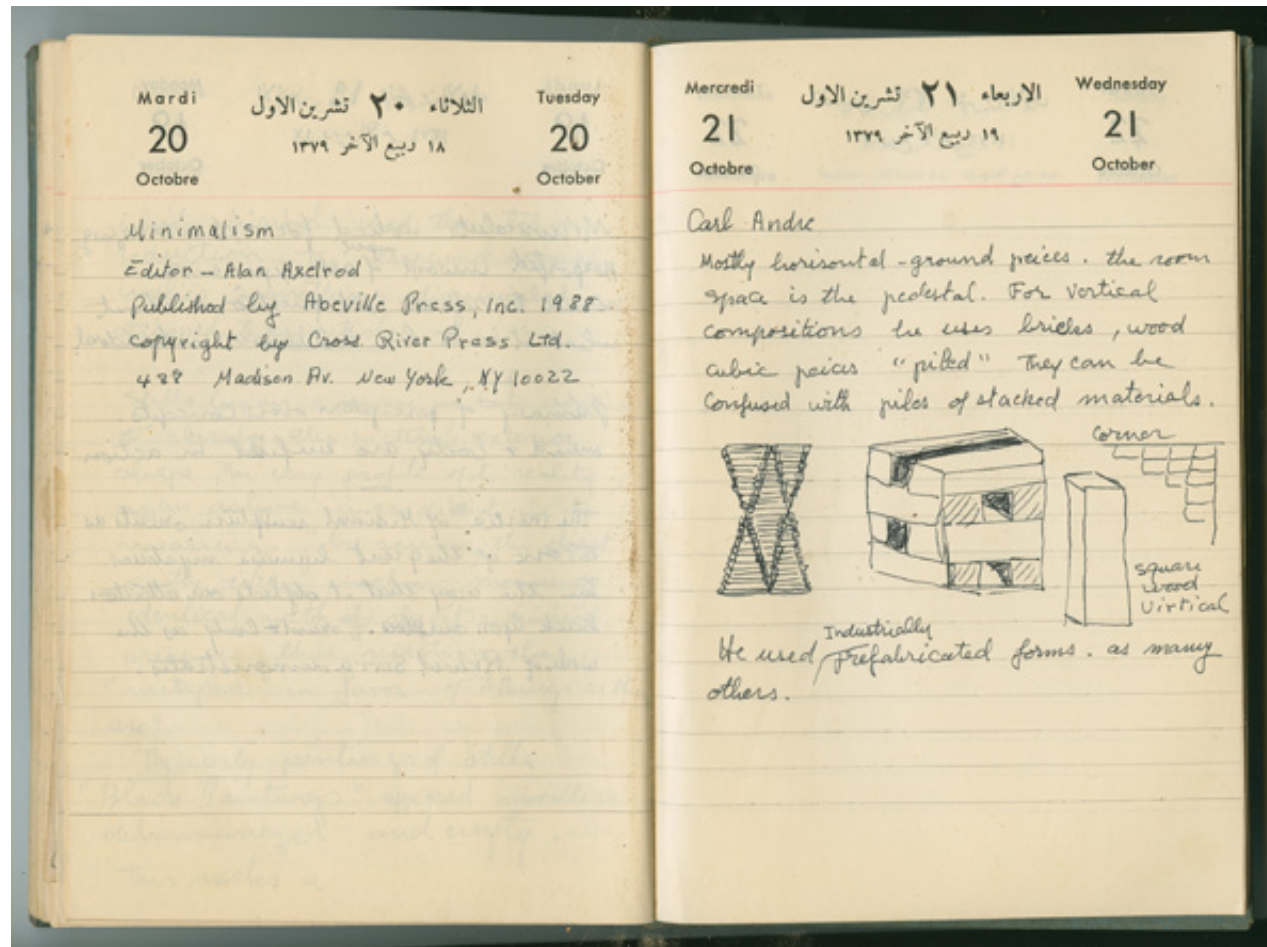 Mardi
20
Octobre
الثلاثاء ٢٠ تشرين الاول
١٨ ربيع الآخر ١٣٧٩
Tuesday
20
October
Minimalism
Editor – Alan Axelrod
Published by Abeville Press, Inc. 1988.
copyright by Cross River Press Ltd.
488 Madison Av. New York, NY 10022
Mercredi
21
Octobre
الاربعاء ٢١ تشرين الاول
١٩ ربيع الآخر ١٣٧٩
Wednesday
21
October
Carl Andre
Mostly horisontal - ground peices. the room
space is the pedestal. For vertical
compositions he uses bricks, wood
cubic peices "piled" They can be
confused with piles of stacked materials.
corner
square
wood
virtical
Industrially
He used prefabricated forms. as many
others.